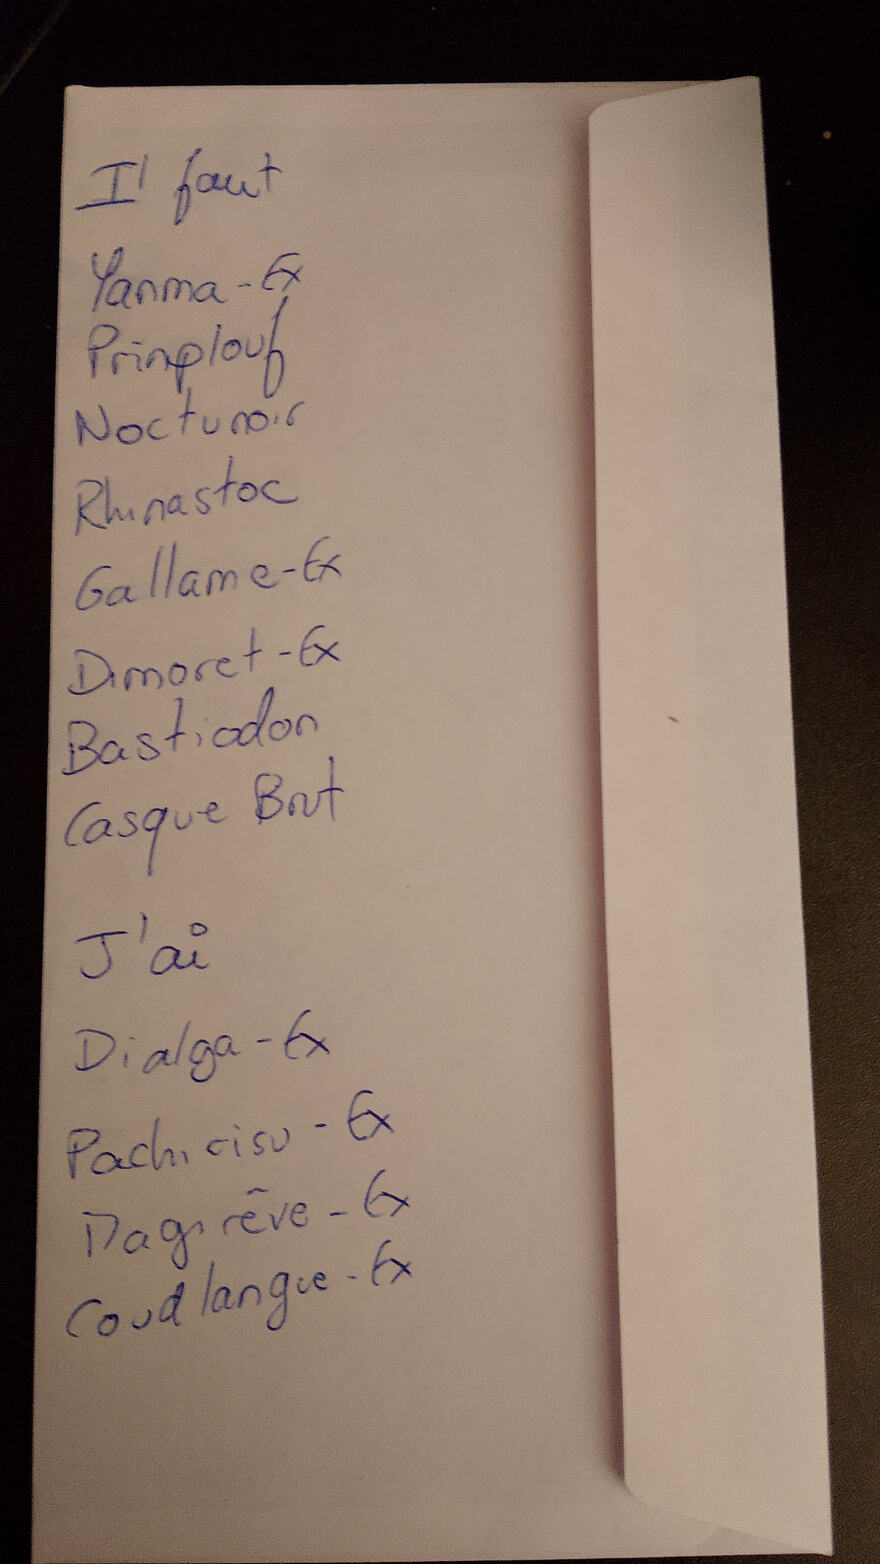 Il faut
Yanma-Ex
Prinplouf
Noctunoir
Rhinastoc
Gallame-Ex
Dimoret-Ex
Bastiodon
Casque Brut
J'ai
Dialga-Ex
Pachirisu-Ex
Magirêve-Ex
Coudlangue-Ex